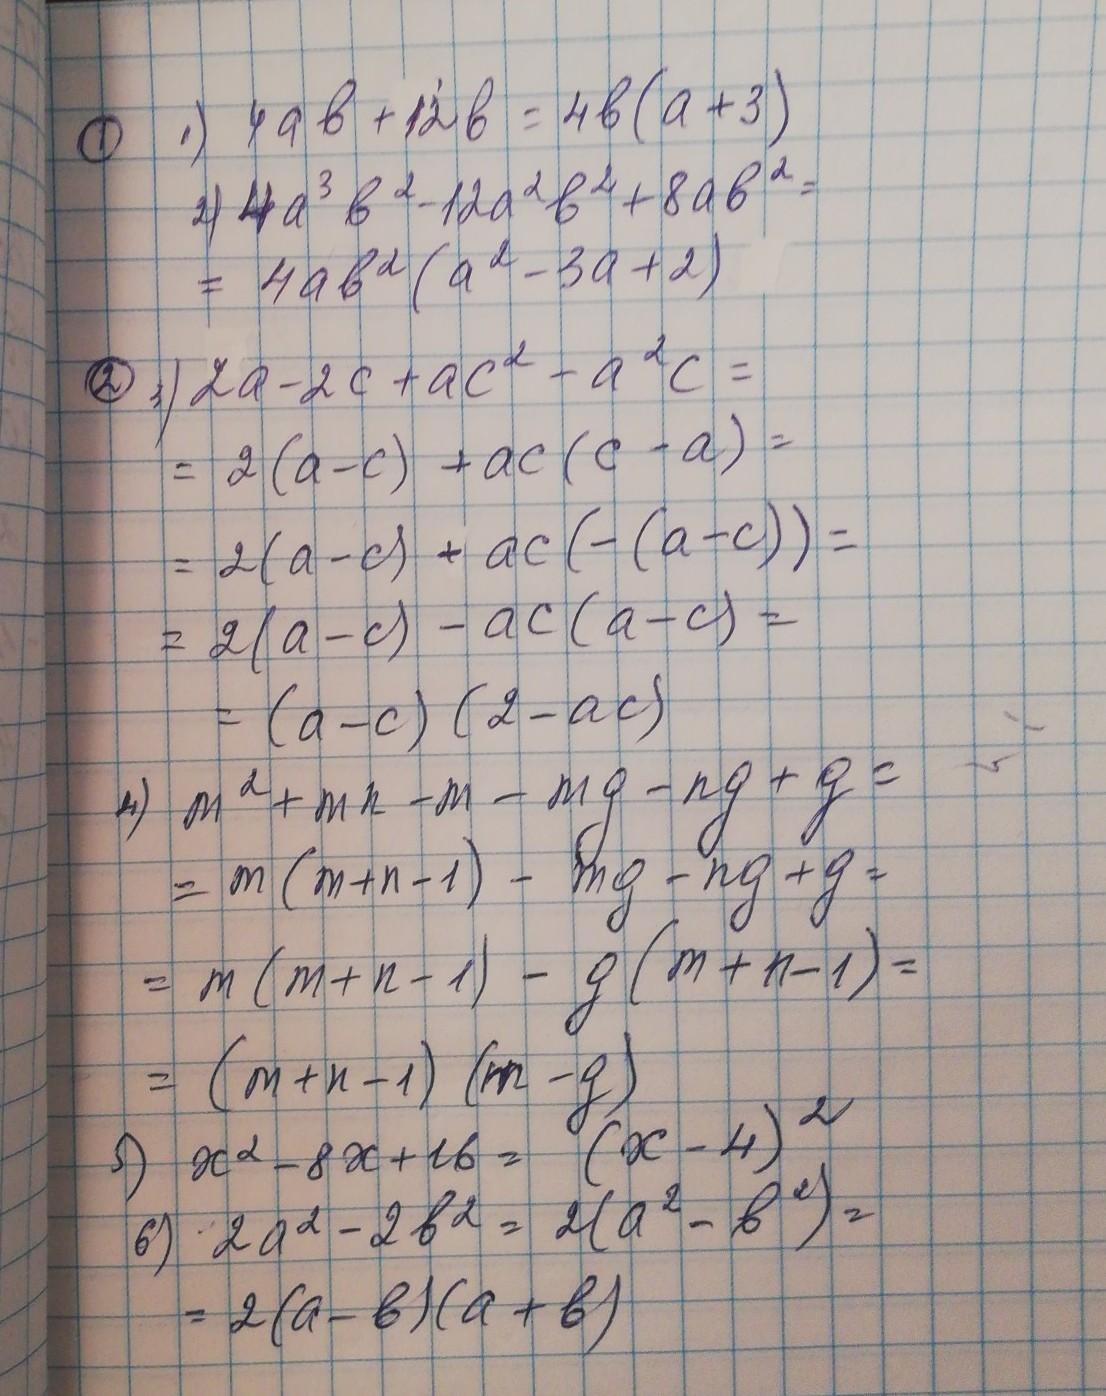 ① 1) 4ab + 12b = 4b(a + 3)
2) 4a³b² - 12a²b² + 8ab² =
= 4ab²(a² - 3a + 2)
② 3) 2a - 2c + ac² - a²c =
= 2(a - c) + ac(c - a) =
= 2(a - c) + ac(-(a - c)) =
= 2(a - c) - ac(a - c) =
= (a - c)(2 - ac)
4) m² + mn - m - mg - ng + g =
= m(m + n - 1) - mg - ng + g =
= m(m + n - 1) - g(m + n - 1) =
= (m + n - 1)(m - g)
5) x² - 8x + 16 = (x - 4)²
6) 2a² - 2b² = 2(a² - b²) =
= 2(a - b)(a + b)